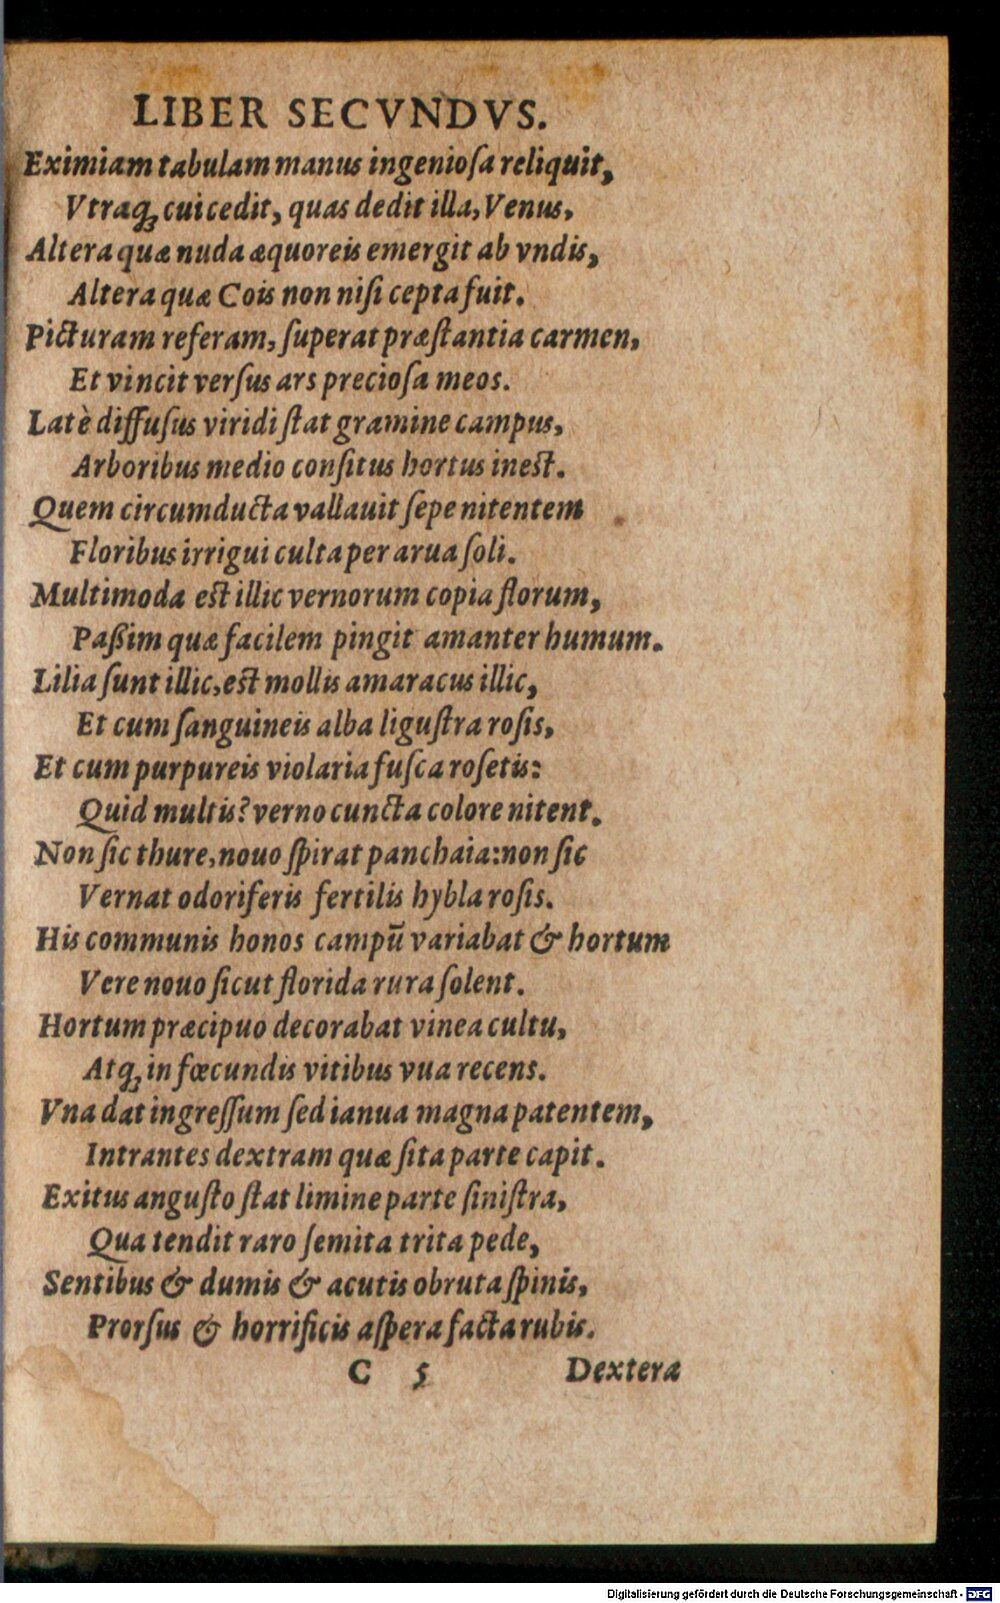 LIBER SECVNDVS.
Eximiam tabulam manus ingenioſa reliquit,
Vtraq; cui cedit, quas dedit illa, Venus,
Altera quæ nuda æquoreis emergit ab vndis,
Altera quæ Cois non niſi cepta fuit.
Picturam referam, ſuperat præſtantia carmen,
Et vincit verſus ars precioſa meos.
Latè diffuſus viridi ſtat gramine campus,
Arboribus medio conſitus hortus ineſt.
Quem circumducta vallauit ſepe nitentem
Floribus irrigui culta per arua ſoli.
Multimoda eſt illic vernorum copia florum,
Paßim quæ facilem pingit amanter humum.
Lilia ſunt illic, eſt mollis amaracus illic,
Et cum ſanguineis alba liguſtra roſis,
Et cum purpureis violaria fuſca roſetis:
Quid multis? verno cuncta colore nitent.
Non ſic thure, nouo ſpirat panchaia: non ſic
Vernat odoriferis fertilis hybla roſis.
His communis honos campū variabat & hortum
Vere nouo ſicut florida rura ſolent.
Hortum præcipuo decorabat vinea cultu,
Atq; in fœcundis vitibus vua recens.
Vna dat ingreſſum ſed ianua magna patentem,
Intrantes dextram quæ ſita parte capit.
Exitus anguſto ſtat limine parte ſiniſtra,
Qua tendit raro ſemita trita pede,
Sentibus & dumis & acutis obruta ſpinis,
Prorſus & horrificis aſpera facta rubis.
C 5 Dextera
Digitalisierung gefördert durch die Deutsche Forschungsgemeinschaft - DFG